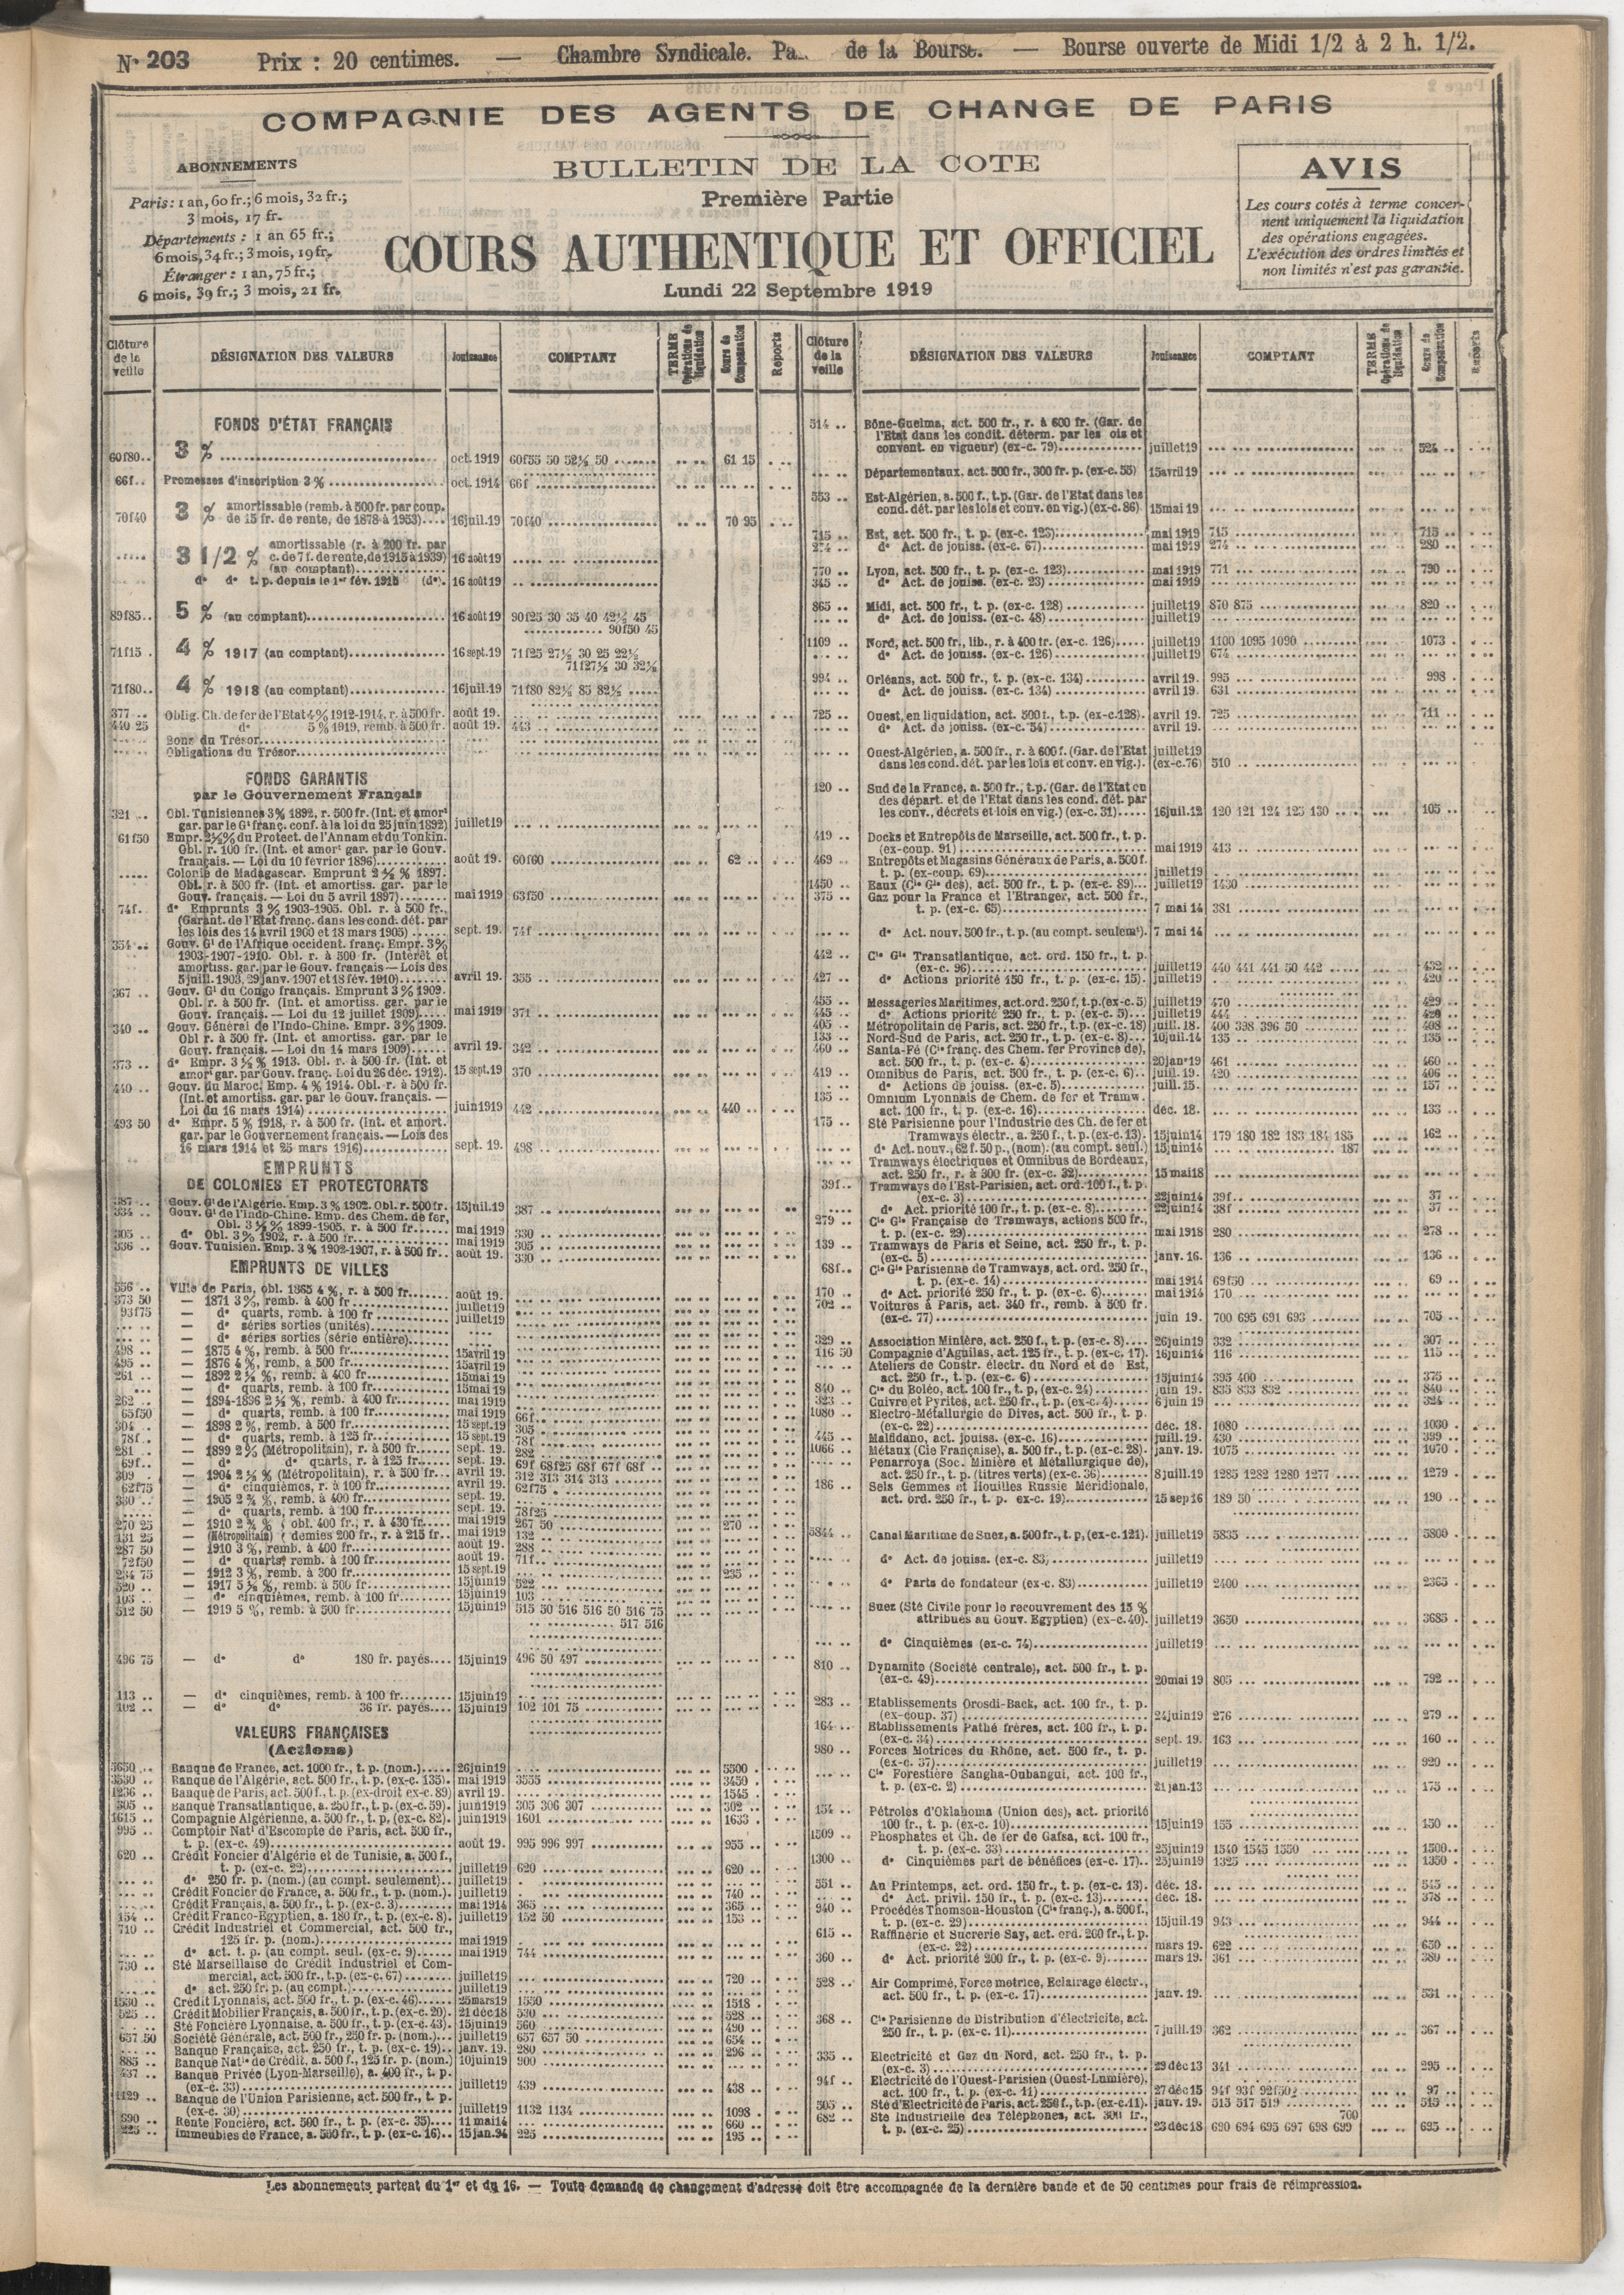 N° 203 Prix : 20 centimes. — Chambre Syndicale. Pa de la Bourse. — Bourse ouverte de Midi 1/2 à 2 h. 1/2.
COMPAGNIE DES AGENTS DE CHANGE DE PARIS
ABONNEMENTS
Paris : 1 an, 60 fr.; 6 mois, 32 fr.;
3 mois, 17 fr.
Départements : 1 an 65 fr.;
6 mois, 34 fr.; 3 mois, 19 fr.
Étranger : 1 an, 75 fr.;
6 mois, 39 fr.; 3 mois, 21 fr.
BULLETIN DE LA COTE
Première Partie
COURS AUTHENTIQUE ET OFFICIEL
Lundi 22 Septembre 1919
AVIS
Les cours cotés à terme concer-
nent uniquement la liquidation
des opérations engagées.
L'exécution des ordres limités et
non limités n'est pas garantie.
Clôture de la veille DÉSIGNATION DES VALEURS Jouissance COMPTANT TERME Opérations de liquidation Cours de Compensation Reports
FONDS D'ÉTAT FRANÇAIS
60f80 3 % oct. 1919 60f55 50 52½ 50 61 15
66f Promesses d'inscription 3 % oct. 1914 66f
3 % amortissable (remb. à 500 fr. par coup.
70f40 de 15 fr. de rente, de 1878 à 1953) 16juil.19 70f40 70 95
3 1/2 % amortissable (r. à 200 fr. par
c. de 7 f. de rente, de 1915 à 1939) 16 août 19
(au comptant)
d° d° t. p. depuis le 1er fév. 1915 (d°). 16 août 19
89f85 5 % (au comptant) 16 août 19 90f25 30 35 40 42½ 45
90f50 45
71f15 4 % 1917 (au comptant) 16 sept.19 71f25 27½ 30 25 22½
71f27½ 30 32½
71f80 4 % 1918 (au comptant) 16juil.19 71f80 82½ 85 82½
377 Oblig. Ch. de fer de l'Etat 4% 1912-1914, r. à 500 fr. août 19.
440 25 d° 5 % 1919, remb. à 500 fr. août 19. 443
Bons du Trésor
Obligations du Trésor
FONDS GARANTIS
par le Gouvernement Français
321 Obl. Tunisiennes 3 % 1892, r. 500 fr. (Int. et amort
gar. par le Gt franç. conf. à la loi du 25 juin 1892) juillet19
61f50 Empr. 2½% du Protect. de l'Annam et du Tonkin.
Obl. r. 100 fr. (Int. et amort gar. par le Gouv.
français. — Loi du 10 février 1896) août 19. 60f60 62
Colonie de Madagascar. Emprunt 2 ½ % 1897.
Obl. r. à 500 fr. (Int. et amortiss. gar. par le
Gouv. français. — Loi du 5 avril 1897) mai 1919 63f50
74f. d° Emprunts 3 % 1903-1905. Obl. r. à 500 fr.,
(Garant. de l'Etat franç. dans les cond. dét. par
les lois des 14 avril 1900 et 18 mars 1905) sept. 19. 74f
354 Gouv. Gl de l'Afrique occident. franç. Empr. 3%
1903-1907-1910. Obl. r. à 500 fr. (Intérêt et
amortiss. gar. par le Gouv. français — Lois des
5 juill. 1903, 29 janv. 1907 et 18 fév. 1910) avril 19. 355
367 Gouv. Gl du Congo français. Emprunt 3 % 1909.
Obl. r. à 500 fr. (Int. et amortiss. gar. par le
Gouv. français. — Loi du 12 juillet 1909) mai 1919 371
340 Gouv. Général de l'Indo-Chine. Empr. 3% 1909.
Obl r. à 500 fr. (Int. et amortiss. gar. par le
Gouv. français. — Loi du 14 mars 1909) avril 19. 342
373 d° Empr. 3 ½ % 1913. Obl. r. à 500 fr. (Int. et
amort gar. par Gouv. franç. Loi du 26 déc. 1912). 15 sept.19 370
440 Gouv. du Maroc. Emp. 4 % 1914. Obl. r. à 500 fr.
(Int. et amortiss. gar. par le Gouv. français. —
Loi du 16 mars 1914) juin1919 442 440
493 50 d° Empr. 5 % 1918, r. à 500 fr. (Int. et amort.
gar. par le Gouvernement français. — Lois des
16 mars 1914 et 25 mars 1916) sept. 19. 498
EMPRUNTS
DE COLONIES ET PROTECTORATS
387 Gouv. Gl de l'Algérie. Emp. 3 % 1902. Obl. r. 500 fr. 15juil.19 387
334 Gouv. Gl de l'Indo-Chine. Emp. des Chem. de fer,
Obl. 3 ½ % 1899-1905, r. à 500 fr. mai 1919 330
305 d° Obl. 3 % 1902, r. à 500 fr. mai 1919 305
336 Gouv. Tunisien. Emp. 3 % 1902-1907, r. à 500 fr. août 19. 330
EMPRUNTS DE VILLES
556 Ville de Paris, obl. 1865 4 %, r. à 500 fr. août 19.
373 50 — 1871 3 %, remb. à 400 fr. juillet19
93f75 — d° quarts, remb. à 100 fr juillet19
— d° séries sorties (unités)
— d° séries sorties (série entière)
498 — 1875 4 %, remb. à 500 fr. 15avril 19
495 — 1876 4 %, remb. à 500 fr. 15avril 19
261 — 1892 2 ½ %, remb. à 400 fr. 15mai 19
— d° quarts, remb. à 100 fr. 15mai 19
262 — 1894-1896 2 ½ %, remb. à 400 fr. mai 1919
65f50 — d° quarts, remb. à 100 fr. mai 1919 66f
304 — 1898 2 %, remb. à 500 fr. 15 sept.19 305
78f — d° quarts, remb. à 125 fr. 15 sept.19 78f
281 — 1899 2 % (Métropolitain), r. à 500 fr. sept. 19. 282
69f — d° d° quarts, r. à 125 fr. sept. 19. 69f 68f25 68f 67f 68f
309 — 1904 2 ½ % (Métropolitain), r. à 500 fr. avril 19. 312 313 314 313
62f75 — d° cinquièmes, r. à 100 fr. avril 19. 62f75
330 — 1905 2 ¾ %, remb. à 400 fr. sept. 19.
— d° quarts, remb. à 100 fr. sept. 19. 78f25
270 25 — 1910 2 ¾ % obl. 400 fr., r. à 430 fr. mai 1919 267 50 270
131 25 — (Métropolitain) demies 200 fr., r. à 215 fr. mai 1919 132
287 50 — 1910 3 %, remb. à 400 fr. août 19. 288
72f50 — d° quarts, remb. à 100 fr. août 19. 71f
234 75 — 1912 3 %, remb. à 300 fr. 15 sept.19 235
520 — 1917 5 ½ %, remb. à 500 fr. 15juin19 522
103 — d° cinquièmes, remb. à 100 fr. 15juin19 103
512 50 — 1919 5 %, remb. à 500 fr. 15juin19 515 50 516 516 50 516 75
517 516
496 75 — d° d° 180 fr. payés 15juin19 496 50 497
113 — d° cinquièmes, remb. à 100 fr. 15juin19
102 — d° d° 36 fr. payés 15juin19 102 101 75
VALEURS FRANÇAISES
(Actions)
5650 Banque de France, act. 1000 fr., t. p. (nom.) 26juin19 5500
3530 Banque de l'Algérie, act. 500 fr., t. p. (ex-c. 135). mai 1919 3555 3450
1236 Banque de Paris, act. 500 f., t. p. (ex-droit ex-c. 89) avril 19. 1545
305 Banque Transatlantique, a. 250 fr., t. p. (ex-c. 59). juin1919 305 306 307 302
1615 Compagnie Algérienne, a. 500 fr., t. p. (ex-c. 82). juin1919 1601 1633
995 Comptoir Natl d'Escompte de Paris, act. 500 fr.,
t. p. (ex-c. 49) août 19. 995 996 997 955
620 Crédit Foncier d'Algérie et de Tunisie, a. 500 f.,
t. p. (ex-c. 22) juillet19 620 620
d° 250 fr. p. (nom.) (au compt. seulement) juillet19
Crédit Foncier de France, a. 500 fr., t. p. (nom.). juillet19 740
Crédit Français, a. 500 fr., t. p. (ex-c. 3) mai 1914 365 365
154 Crédit Franco-Egyptien, a. 180 fr., t. p. (ex-c. 8). juillet19 152 50 153
710 Crédit Industriel et Commercial, act. 500 fr.,
125 fr. p. (nom.) mai 1919
d° act. t. p. (au compt. seul. (ex-c. 9) mai 1919 744
730 Sté Marseillaise de Crédit Industriel et Com-
mercial, act. 500 fr., t.p. (ex-c. 67) juillet19 720
d° act. 250 fr. p. (au compt.) juillet19
1530 Crédit Lyonnais, act. 500 fr., t. p. (ex-c. 46) 25mars19 1550 1518
525 Crédit Mobilier Français, a. 500 fr., t.p. (ex-c. 20). 21 déc 18 530 528
Sté Foncière Lyonnaise, a. 500 fr., t. p. (ex-c. 43). 15juin19 560 490
657 50 Société Générale, act. 500 fr., 250 fr. p. (nom.) juillet19 657 657 50 654
Banque Française, act. 250 fr., t. p. (ex-c. 19) janv. 19. 280 296
885 Banque Natle de Crédit, a. 500 f., 125 fr. p. (nom.) 10juin19 900
437 Banque Privée (Lyon-Marseille), a. 400 fr., t. p.
(ex-c. 33) juillet19 439 438
1129 Banque de l'Union Parisienne, act. 500 fr., t. p.
(ex-c. 30) juillet19 1132 1134 1098
690 Rente Foncière, act. 500 fr., t. p. (ex-c. 35) 11 mai14 660
225 Immeubles de France, a. 500 fr., t. p. (ex-c. 16) 15jan. 225 195
Clôture de la veille DÉSIGNATION DES VALEURS Jouissance COMPTANT TERME Opérations de liquidation Cours de Compensation Reports
514 Bône-Guelma, act. 500 fr., r. à 600 fr. (Gar. de
l'Etat dans les condit. déterm. par les ois et
convent. en vigueur) (ex-c. 79) juillet19 524
Départementaux. act. 500 fr., 300 fr. p. (ex-c. 55) 15avril 19
553 Est-Algérien, a. 500 f., t.p. (Gar. de l'Etat dans les
cond. dét. par les lois et conv. en vig.) (ex-c. 86) 15mai 19
715 Est, act. 500 fr., t. p. (ex-c. 123) mai 1919 715 715
274 d° Act. de jouiss. (ex-c. 67) mai 1919 274 280
770 Lyon, act. 500 fr., t. p. (ex-c. 123) mai 1919 771 790
345 d° Act. de jouiss. (ex-c. 23) mai 1919
865 Midi, act. 500 fr., t. p. (ex-c. 128) juillet19 870 875 820
d° Act. de jouiss. (ex-c. 48) juillet19
1109 Nord, act. 500 fr., lib., r. à 400 fr. (ex-c. 126) juillet19 1100 1095 1090 1073
d° Act. de jouiss. (ex-c. 126) juillet19 674
994 Orléans, act. 500 fr., t. p. (ex-c. 134) avril 19. 995 998
d° Act. de jouiss. (ex-c. 134) avril 19. 631
725 Ouest, en liquidation, act. 500 f., t.p. (ex-c.128). avril 19. 725 711
d° Act. de jouiss. (ex-c. 54) avril 19.
Ouest-Algérien, a. 500 fr., r. à 600 f. (Gar. de l'Etat juillet19
dans les cond. dét. par les lois et conv. en vig.). (ex-c.76) 510
120 Sud de la France, a. 500 fr., t.p. (Gar. de l'Etat ou
des départ. et de l'Etat dans les cond. dét. par
les conv., décrets et lois en vig.) (ex-c. 31) 16juil.12 120 121 124 125 130 105
419 Docks et Entrepôts de Marseille, act. 500 fr., t. p.
(ex-coup. 91) mai 1919 413
469 Entrepôts et Magasins Généraux de Paris, a. 500 f.
t. p. (ex-coup. 69) juillet19
1450 Eaux (Cie Gle des), act. 500 fr., t. p. (ex-c. 89) juillet19 1430
375 Gaz pour la France et l'Etranger, act. 500 fr.,
t. p. (ex-c. 65) 7 mai 14 381
d° Act. nouv. 500 fr., t. p. (au compt. seulemt). 7 mai 14
442 Cie Gle Transatlantique, act. ord. 150 fr., t. p.
(ex-c. 96) juillet19 440 441 441 50 442 432
427 d° Actions priorité 150 fr., t. p. (ex-c. 15). juillet19 420
455 Messageries Maritimes, act. ord. 250 f., t.p. (ex-c. 5) juillet19 470 429
445 d° Actions priorité 250 fr., t. p. (ex-c. 5) juillet19 444
405 Métropolitain de Paris, act. 250 fr., t.p. (ex-c. 18) juill. 18. 400 398 396 50 408
133 Nord-Sud de Paris, act. 250 fr., t. p. (ex-c. 8) 10juil.14 135 135
460 Santa-Fé (Cie franç. des Chem. fer Province de),
act. 500 fr., t. p. (ex-c. 4) 20janv19 461 460
419 Omnibus de Paris, act. 500 fr., t. p. (ex-c. 6) juill. 19. 420 406
d° Actions de jouiss. (ex-c. 5) juill. 15. 157
135 Omnium Lyonnais de Chem. de fer et Tramw.
act. 100 fr., t. p. (ex-c. 16) déc. 18. 133
175 Sté Parisienne pour l'Industrie des Ch. de fer et
Tramways électr., a. 250 f., t. p. (ex-c. 13). 15juin14 179 180 182 183 184 185 162
d° Act. nouv., 62 f. 50 p., (nom) (au compt. seul.) 15juin14 187
Tramways électriques et Omnibus de Bordeaux,
act. 250 fr., r. à 300 fr. (ex-c. 32) 15 mai18
39f Tramways de l'Est-Parisien, act. ord. 100 f., t. p.
(ex-c. 3) 22juin14 39f 37
d° Act. priorité 100 fr., t. p. (ex-c. 8) 22juin14 38f 37
279 Cie Gle Française de Tramways, actions 500 fr.,
t. p. (ex-c. 29) mai 1918 280 278
139 Tramways de Paris et Seine, act. 250 fr., t. p.
(ex-c. 5) janv. 16. 136 136
68f Cie Gle Parisienne de Tramways, act. ord. 250 fr.,
t. p. (ex-c. 14) mai 1914 69f50 69
170 d° Act. priorité 250 fr., t. p. (ex-c. 6) mai 1914 170
702 Voitures à Paris, act. 340 fr., remb. à 500 fr.
(ex-c. 77) juin 19. 700 695 691 693 705
329 Association Minière, act. 250 f., t. p. (ex-c. 8) 26juin19 332 307
116 50 Compagnie d'Aguilas, act. 125 fr., t. p. (ex-c. 17). 16juin14 116 115
Ateliers de Constr. électr. du Nord et de Est,
act. 250 fr., t. p. (ex-c. 6) 15juin14 395 400 375
840 Cie du Boléo, act. 100 fr., t. p. (ex-c. 24) juin 19. 835 833 832 840
323 Cuivre et Pyrites, act. 250 fr., t. p. (ex-c. 4) 6 juin 19 324
1080 Electro-Métallurgie de Dives, act. 500 fr., t. p.
(ex-c. 22) déc. 18. 1080 1030
445 Malfidano, act. jouiss. (ex-c. 16) juill. 19. 430 399
1066 Métaux (Cie Française), a. 500 fr., t.p. (ex-c. 28). janv. 19. 1075 1070
Penarroya (Soc. Minière et Métallurgique de),
act. 250 fr., t. p. (titres verts) (ex-c. 36) 8juill.19 1285 1282 1280 1277 1279
186 Sels Gemmes et Houilles Russie Méridionale,
act. ord. 250 fr., t. p. ex-c. 19) 15 sep16 189 50 190
5844 Canal Maritime de Suez, a. 500 fr., t. p. (ex-c. 121). juillet19 5835 5800
d° Act. de jouiss. (ex-c. 83) juillet19
d° Parts de fondateur (ex-c. 83) juillet19 2400 2365
Suez (Sté Civile pour le recouvrement des 15 %
attribués au Gouv. Egyptien) (ex-c. 40). juillet19 3650 3685
d° Cinquièmes (ex-c. 74) juillet19
810 Dynamite (Société centrale), act. 500 fr., t. p.
(ex-c. 49) 20mai 19 805 792
283 Etablissements Orosdi-Back, act. 100 fr., t. p.
(ex-coup. 37) 24juin19 276 279
164 Etablissements Pathé frères, act. 100 fr., t. p.
(ex-c. 34) sept. 19. 163 160
980 Forces Motrices du Rhône, act. 500 fr., t. p.
(ex-c. 37) juillet19 920
Cie Forestière Sangha-Oubangui, act. 100 fr.,
t. p. (ex-c. 2) 21 jan.13 175
154 Pétroles d'Oklahoma (Union des), act. priorité
100 fr., t. p. (ex-c. 10) 15juin19 155 150
1509 Phosphates et Ch. de fer de Gafsa, act. 100 fr.,
t. p. (ex-c. 33) 25juin19 1540 1545 1550 1500
1300 d° Cinquièmes part de bénéfices (ex-c. 17) 25juin19 1325 1350
551 Au Printemps, act. ord. 150 fr., t. p. (ex-c. 13). déc. 18. 545
d° Act. privil. 150 fr., t. p. (ex-c. 13) dec. 18. 378
940 Procédés Thomson-Houston (Cie franç.), a. 500 f.,
t. p. (ex-c. 29) 15juil.19 943 944
615 Raffinerie et Sucrerie Say, act. ord. 200 fr., t. p.
(ex-c. 22) mars 19. 622 650
360 d° Act. priorité 200 fr., t. p. (ex-c. 9) mars 19. 361 380
528 Air Comprimé, Force motrice, Eclairage électr.,
act. 500 fr., t. p. (ex-c. 17) janv. 19. 531
368 Cie Parisienne de Distribution d'électricité, act.
250 fr., t. p. (ex-c. 11) 7 juill.19 362 367
335 Electricité et Gaz du Nord, act. 250 fr., t. p.
(ex-c. 3) 29 déc13 341 295
94f Electricité de l'Ouest-Parisien (Ouest-Lumière),
act. 100 fr., t. p. (ex-c. 11) 27 déc 15 94f 93f 92f50 97
505 Sté d'Electricité de Paris, act. 250 f., t.p. (ex-c.11). janv. 19. 513 517 519 515
682 Sté Industrielle des Téléphones, act. 300 fr., 700
t. p. (ex-c. 25) 23 déc18 690 694 695 697 698 699 695
Les abonnements partent du 1er et du 16. — Toute demande de changement d'adresse doit être accompagnée de la dernière bande et de 50 centimes pour frais de réimpression.